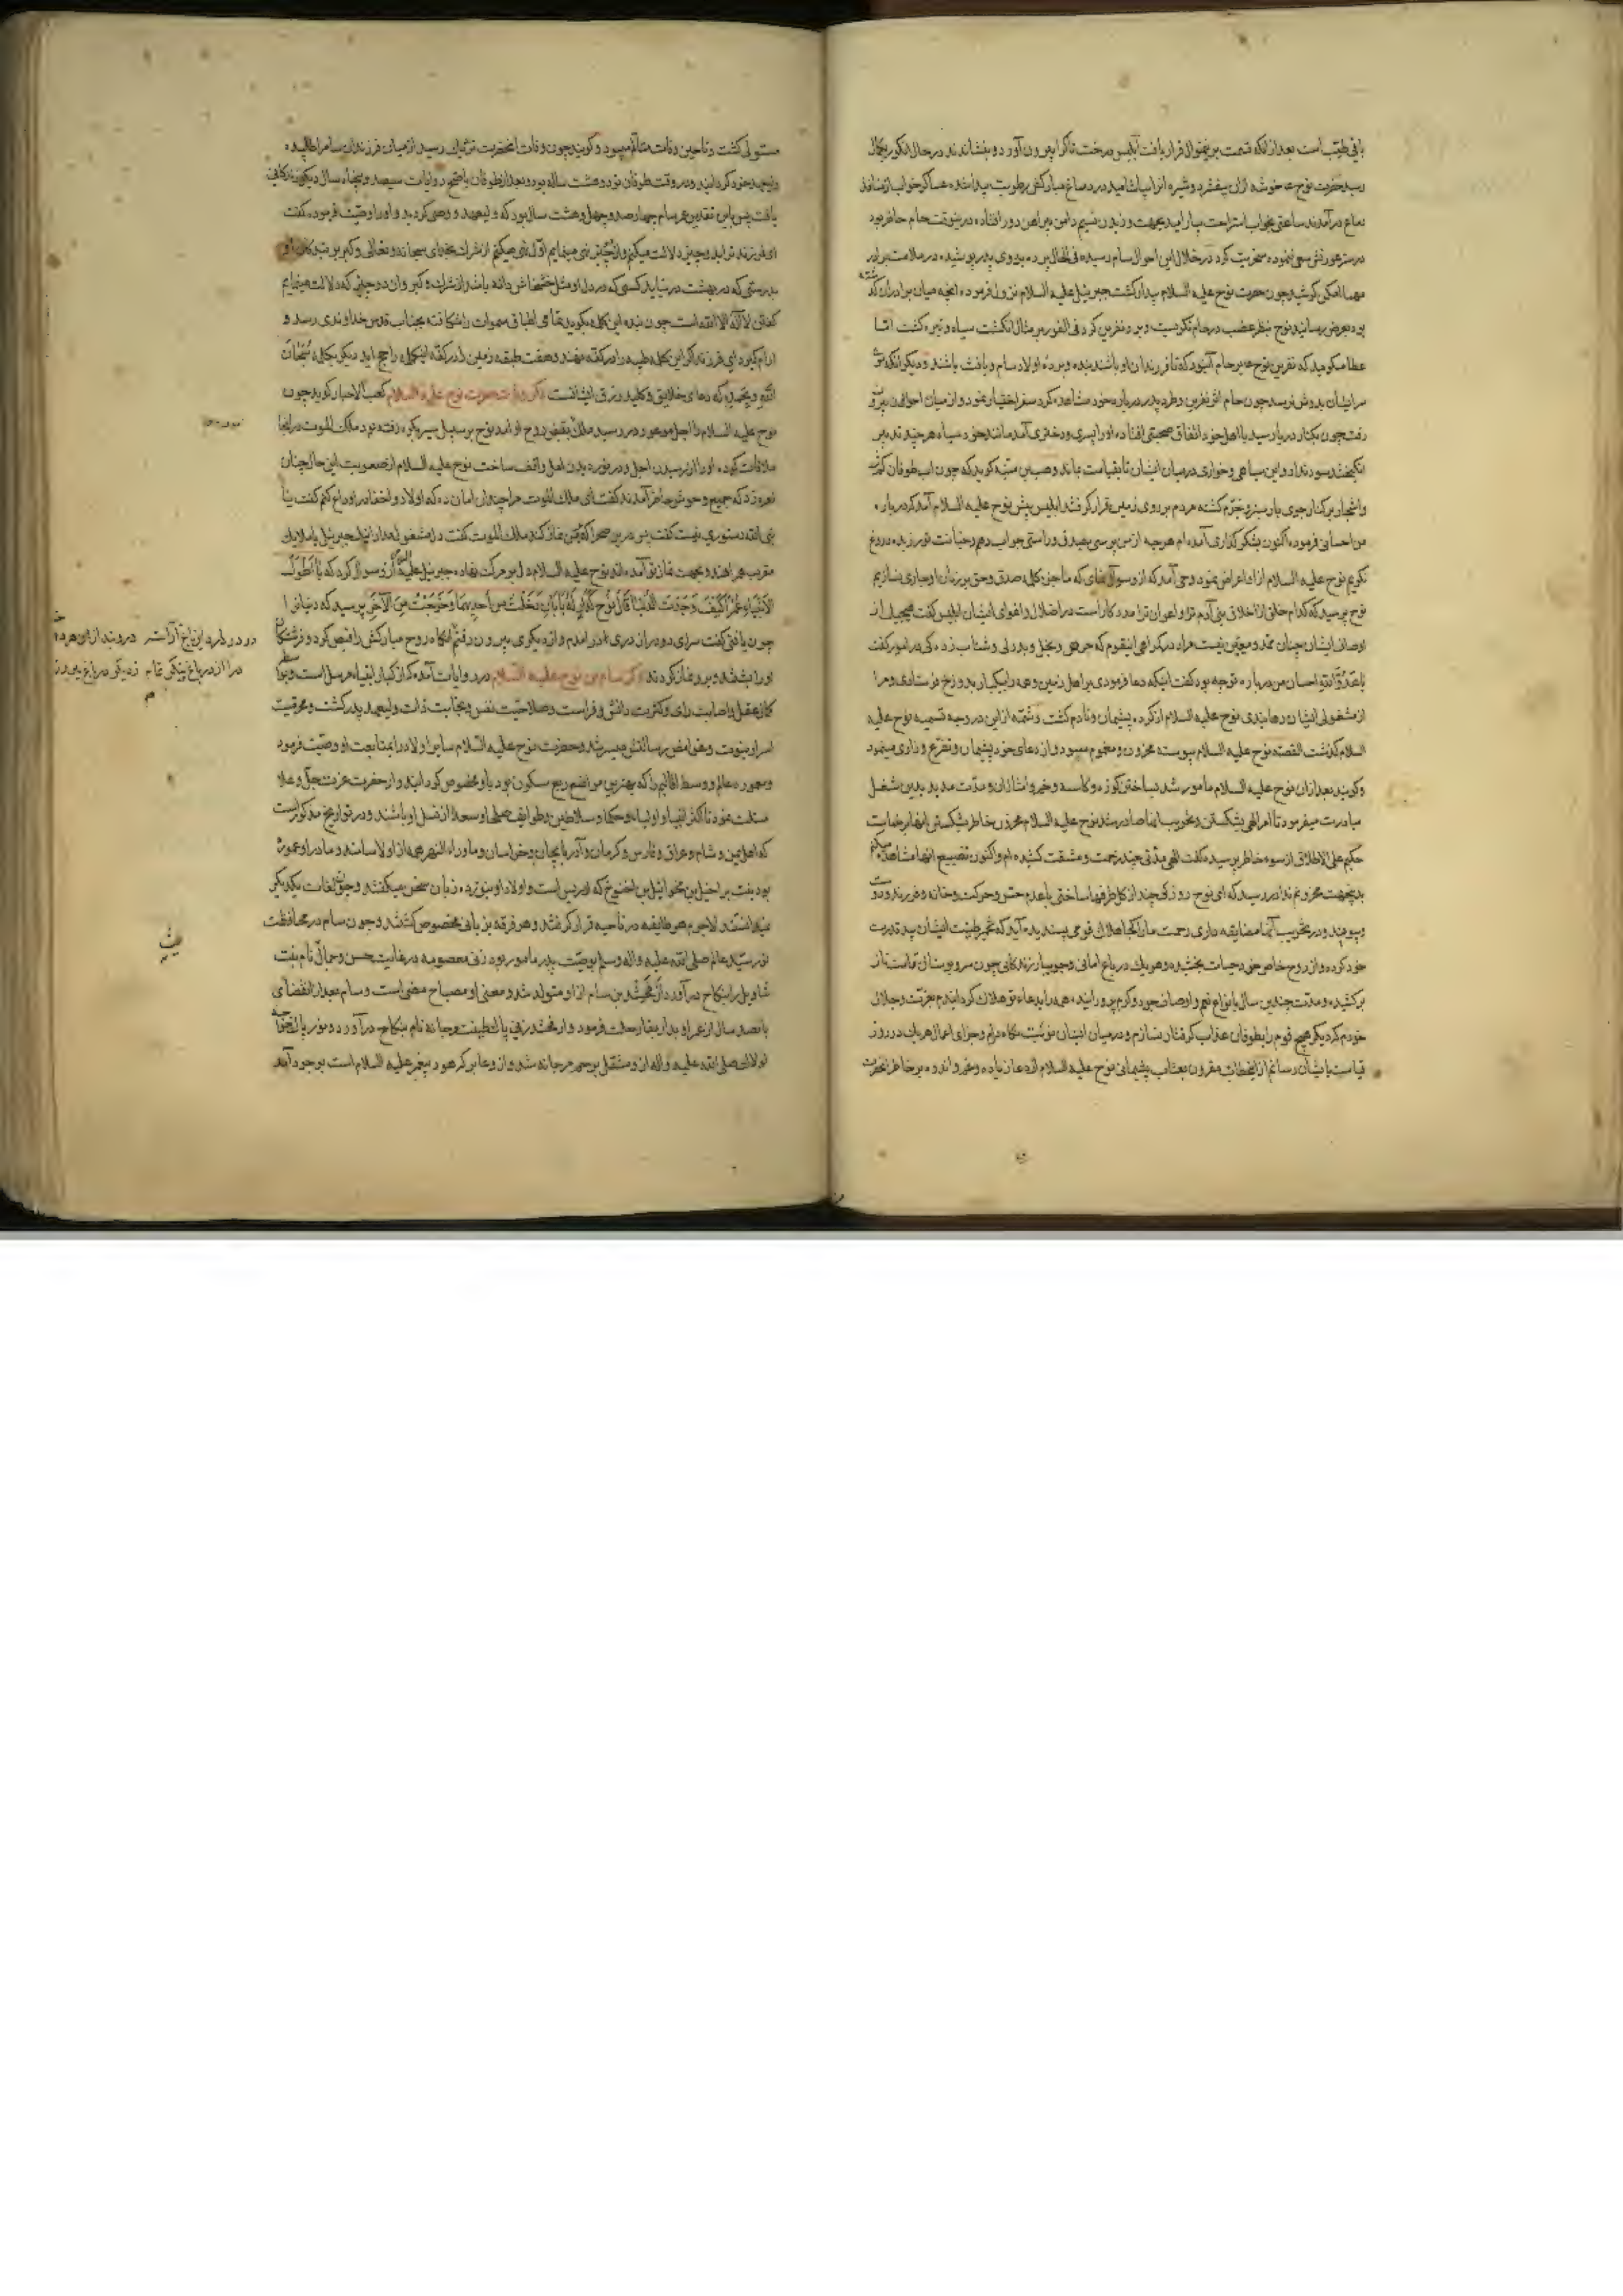 باقی طیب است بعد از انکه قسمت برینمنوال قرار یافت ابلیس درخت تاک را بیرون آورد و بنشاندند در حال انکور بکمال
رسید حضرت نوح ع خوشه ازان بیفشرد و شیره انرا بیاشامید در دماغ مبارکش رطوبت پیدا شده
در آمدند ساعتی بخواب استراحت دامن پیراهن دور افتاده درینوقت حام حاضر بود
در ستر عورتش سعی ننموده سخریت کرد در خلال این احوال سام رسیده فی الحال پرده بر روی پدر پوشیده در ملامت برادر
کوشید و چون حضرت نوح علیه السلام بیدار کشت جبرئیل علیه السلام نزول فرموده انچه میان برادران
بود بعرض رسانید و نوح بنظر غضب در حام نکریست و بر و نفرین کرد فی الفور بر مثال انکشت سیاه و تیره کشت اما
عطا میکوید که نفرین نوح ع بر حام آنبود که تا فرزندان او باشند بنده و برده اولاد سام و یافث باشند و دیکر انکه موی
سر ایشان بدوش نرسد چون حام اثر نفرین و طرد پدر درباره خود مشاهده کرد سفر اختیار نمود و از میان اخوان بیرون
رفت چون بکنار دریا رسید با اهل خود اتفاق صحبتی افتاده او را پسری و دختری آمد مانند خود سیاه هر چند تدبیر
انکیخت سود نداد و این سیاهی و خواری در میان ایشان تا بقیامت بماند وهب بن منبه کوید که چون اب طوفان کم شد
و اشجار بر کنار جوی بار سبز و خرم کشته مردم بر روی زمین قرار کرفتند ابلیس پیش نوح علیه السلام آمد که درباره
من احسانی فرموده اکنون بشکر کذاری آمده ام هر چه از من پرسی بصدق و راستی جواب دهم و خیانت نورزیده دروغ
نکویم نوح علیه السلام از او اعراض نمود وحی آمد که از و سوال نمای که ما جز کلمه صدق و حق بر زبان او جاری نسازیم
نوح پرسید که کدام خلق از اخلاق بنی آدم ترا و اعوان ترا مدد کار است در اضلال و اغوای ایشان ابلیس کفت
اوصاف ایشان مرا در کمراهی اینقوم که حرص و بخل و بددلی و شتاب زدکی در امور کفت
یا عدو الله احسان من درباره تو چه بود کفت اینکه دعا فرمودی بر اهل زمین و همه را بیکبار بدوزخ فرستادی و مرا
از مشغولی ایشان رها نیدی نوح علیه السلام از کرده پشیمان و نادم کشت و شمه از این در وجه تسمیه نوح علیه
السلام کذشت القصه نوح علیه السلام پیوسته محزون و مغموم میبود و از دعای خود پشیمان و تضرع و زاری مینمود
و کویند بعد از ان نوح علیه السلام مامور شد بساختن کوزه و کاسه و مدت مدید بدین شغل
مبادرت میفرمود تا امر الهی بشکستن و تخریب انها صادر شد نوح علیه السلام محزون خاطر
حکیم علی الاطلاق از سوء خاطر پرسیده کفت الهی مدتی چند زحمت و مشقت کشیده ام و اکنون تضییع انها مشاهده میکنم
بدینجهت محزونم ندا در رسید که ای نوح روزکی چند از کل ظرفها ساختی با عدم حس و حرکت و خانه و فرزند
و پیوند و در تخریب آنها مضایقه داری رحمت ما را کجا هلاک قومی پسندیده آید که خمیر طینت ایشان بید قدرت
خود کرده و از روح خاص خود حیات بخشیده و هر یک در باغ امانی و جویبار زندکانی چون سرو بوستانی قامت ناز
برکشیده و مدت چندین سال بانواع نعم و اوصاف جود و کرم پرورانیده همه را بدعاء تو هلاک کردانیدم بعزت و جلال
خودم که دیکر هیچ قوم را بطوفان عذاب کرفتار نسازم و در میان ایشان نوبت نکاه دارم و جزای اعمال هر یک در روز
قیامت بایشان رسانم از این خطاب مقرون بعتاب پشیمانی نوح علیه السلام از دعا زیاده و غم و اندوه بر خاطر انحضرت
مستولی کشت و تا حین وفات متالم میبود و کویند چون وفات انحضرت نزدیک رسید از میان فرزندان سام را طلبیده
ولیعهد خود کردانید و در وقت طوفان نود و هشت ساله بود و بعد از طوفان باصح روایات سیصد و پنجاه سال دیکر زندکانی
یافت پس باین تقدیر عمر سام چهار صد و چهل و هشت سال بود که ولیعهد و وصی کردید و او را وصیت فرموده کفت
ای فرزند ترا بدو چیز دلالت میکنم و از دو چیز نهی مینمایم اول نهی میکنم از شرک بخدای سبحانه و تعالی و کبر
بدرستی که در بهشت در نیاید کسی که در دل او مثل خشخاش دانه باشد از شرک و کبر و ان دو چیزی که دلالت مینمایم
کفتن لا اله الا الله است چون بنده این کلمه بکوید تمامی اطباق سموات را شکافته بجناب قدس خداوندی رسد و
ارام کیرد ای فرزند اکر این کلمه طیبه را در کفه نهند و هفت طبقه زمین را در کفه اینکلمه راجح اید دیکر بکلمه سبحان
الله و بحمده که دعای خلایق و کلید رزق ایشانست ذکر وفات حضرت نوح علیه السلام کعب الاحبار کوید چون
نوح علیه السلام را اجل موعود در رسید ملک بقبض روح او امد نوح بر سبیل سیر بکوه رفته بود ملک الموت در انجا
ملاقات کرده او را از رسیدن اجل و در نوردیدن امل واقف ساخت نوح علیه السلام از صعوبت این حال چنان
نعره زد که جمیع وحوش حاضر آمدند کفت ای ملک الموت مرا چندان امان ده که اولاد و احفاد را وداع کنم کفت یا
نبی الله دستوری نیست کفت پس درین صحرا که بر من نماز کند ملک الموت کفت دل مشغول مدار اینک جبرئیل با ملایک
مقرب همراهند و بجهت نماز تو آمده اند نوح علیه السلام دل بر مرک نهاده جبرئیل علیه السلام از و سوال کرد که یا اطول
الانبیاء عمرا کیف وجدت الدنیا قال نوح کدار له بابان دخلت من احدهما و خرجت من الآخر پرسید که دنیا را
چون یافتی کفت سرای دو در از دری در امدم و از دیکری بیرون رفتم انکاه روح مبارکش را قبض کرد و فرشتکان
او را بشستند و بر و نماز کردند ذکر سام بن نوح علیه السلام در روایات آمده که از کبار انبیاء مرسل است و بواسطه
کمال عقل و اصابت رای و کثرت دانش و فراست و صلاحیت نفس و نجابت ذات ولیعهد پدر کشت و محرمیت
اسرار نبوت و غوامض رسالتش میسر شد و حضرت نوح علیه السلام سایر اولاد را بمتابعت او وصیت فرمود
و معموره عالم و وسط اقالیم را که بهترین مواضع ربع مسکون بود باو مخصوص کردانید و از حضرت عزت جل و علا
مسئلت نمود تا اکثر انبیا و اولیاء و حکما و سلاطین و طوایف صلحا و سعدا از نسل او باشند و در تواریخ مذکور است
که اهل یمن و شام و عراق و فارس و کرمان و آذربایجان و خراسان و ماوراء النهر همه از اولاد سامند و مادر او عموره
بود بنت براخیل بن مخوائیل بن اخنوخ که ادریس است و اولاد او بنوزده زبان سخن میکفتند و چون لغات یکدیکر
نمیدانستند لاجرم هر طایفه در ناحیه قرار کرفتند و هر فرقه بزبانی مخصوص کشتند و چون سام در محافظت
نور سید عالم صلی الله علیه واله وسلم بوصیت پدر مامور بود زنی معصومه در غایت حسن و جمال نام بنت
شاویل را بنکاح در آورد ارفخشد بن سام از او متولد شد و معنی او مصباح مضی است و سام بعد از انقضای
پانصد سال از عمر او بدار بقا رحلت فرمود و ارفخشد زنی پاک طینت مرجانه نام بنکاح در آورد و نور پاک
لولاک صلی الله علیه واله از و منتقل برحم مرجانه شد و از و عابر که هود پیغمبر علیه السلام است بوجود آمد